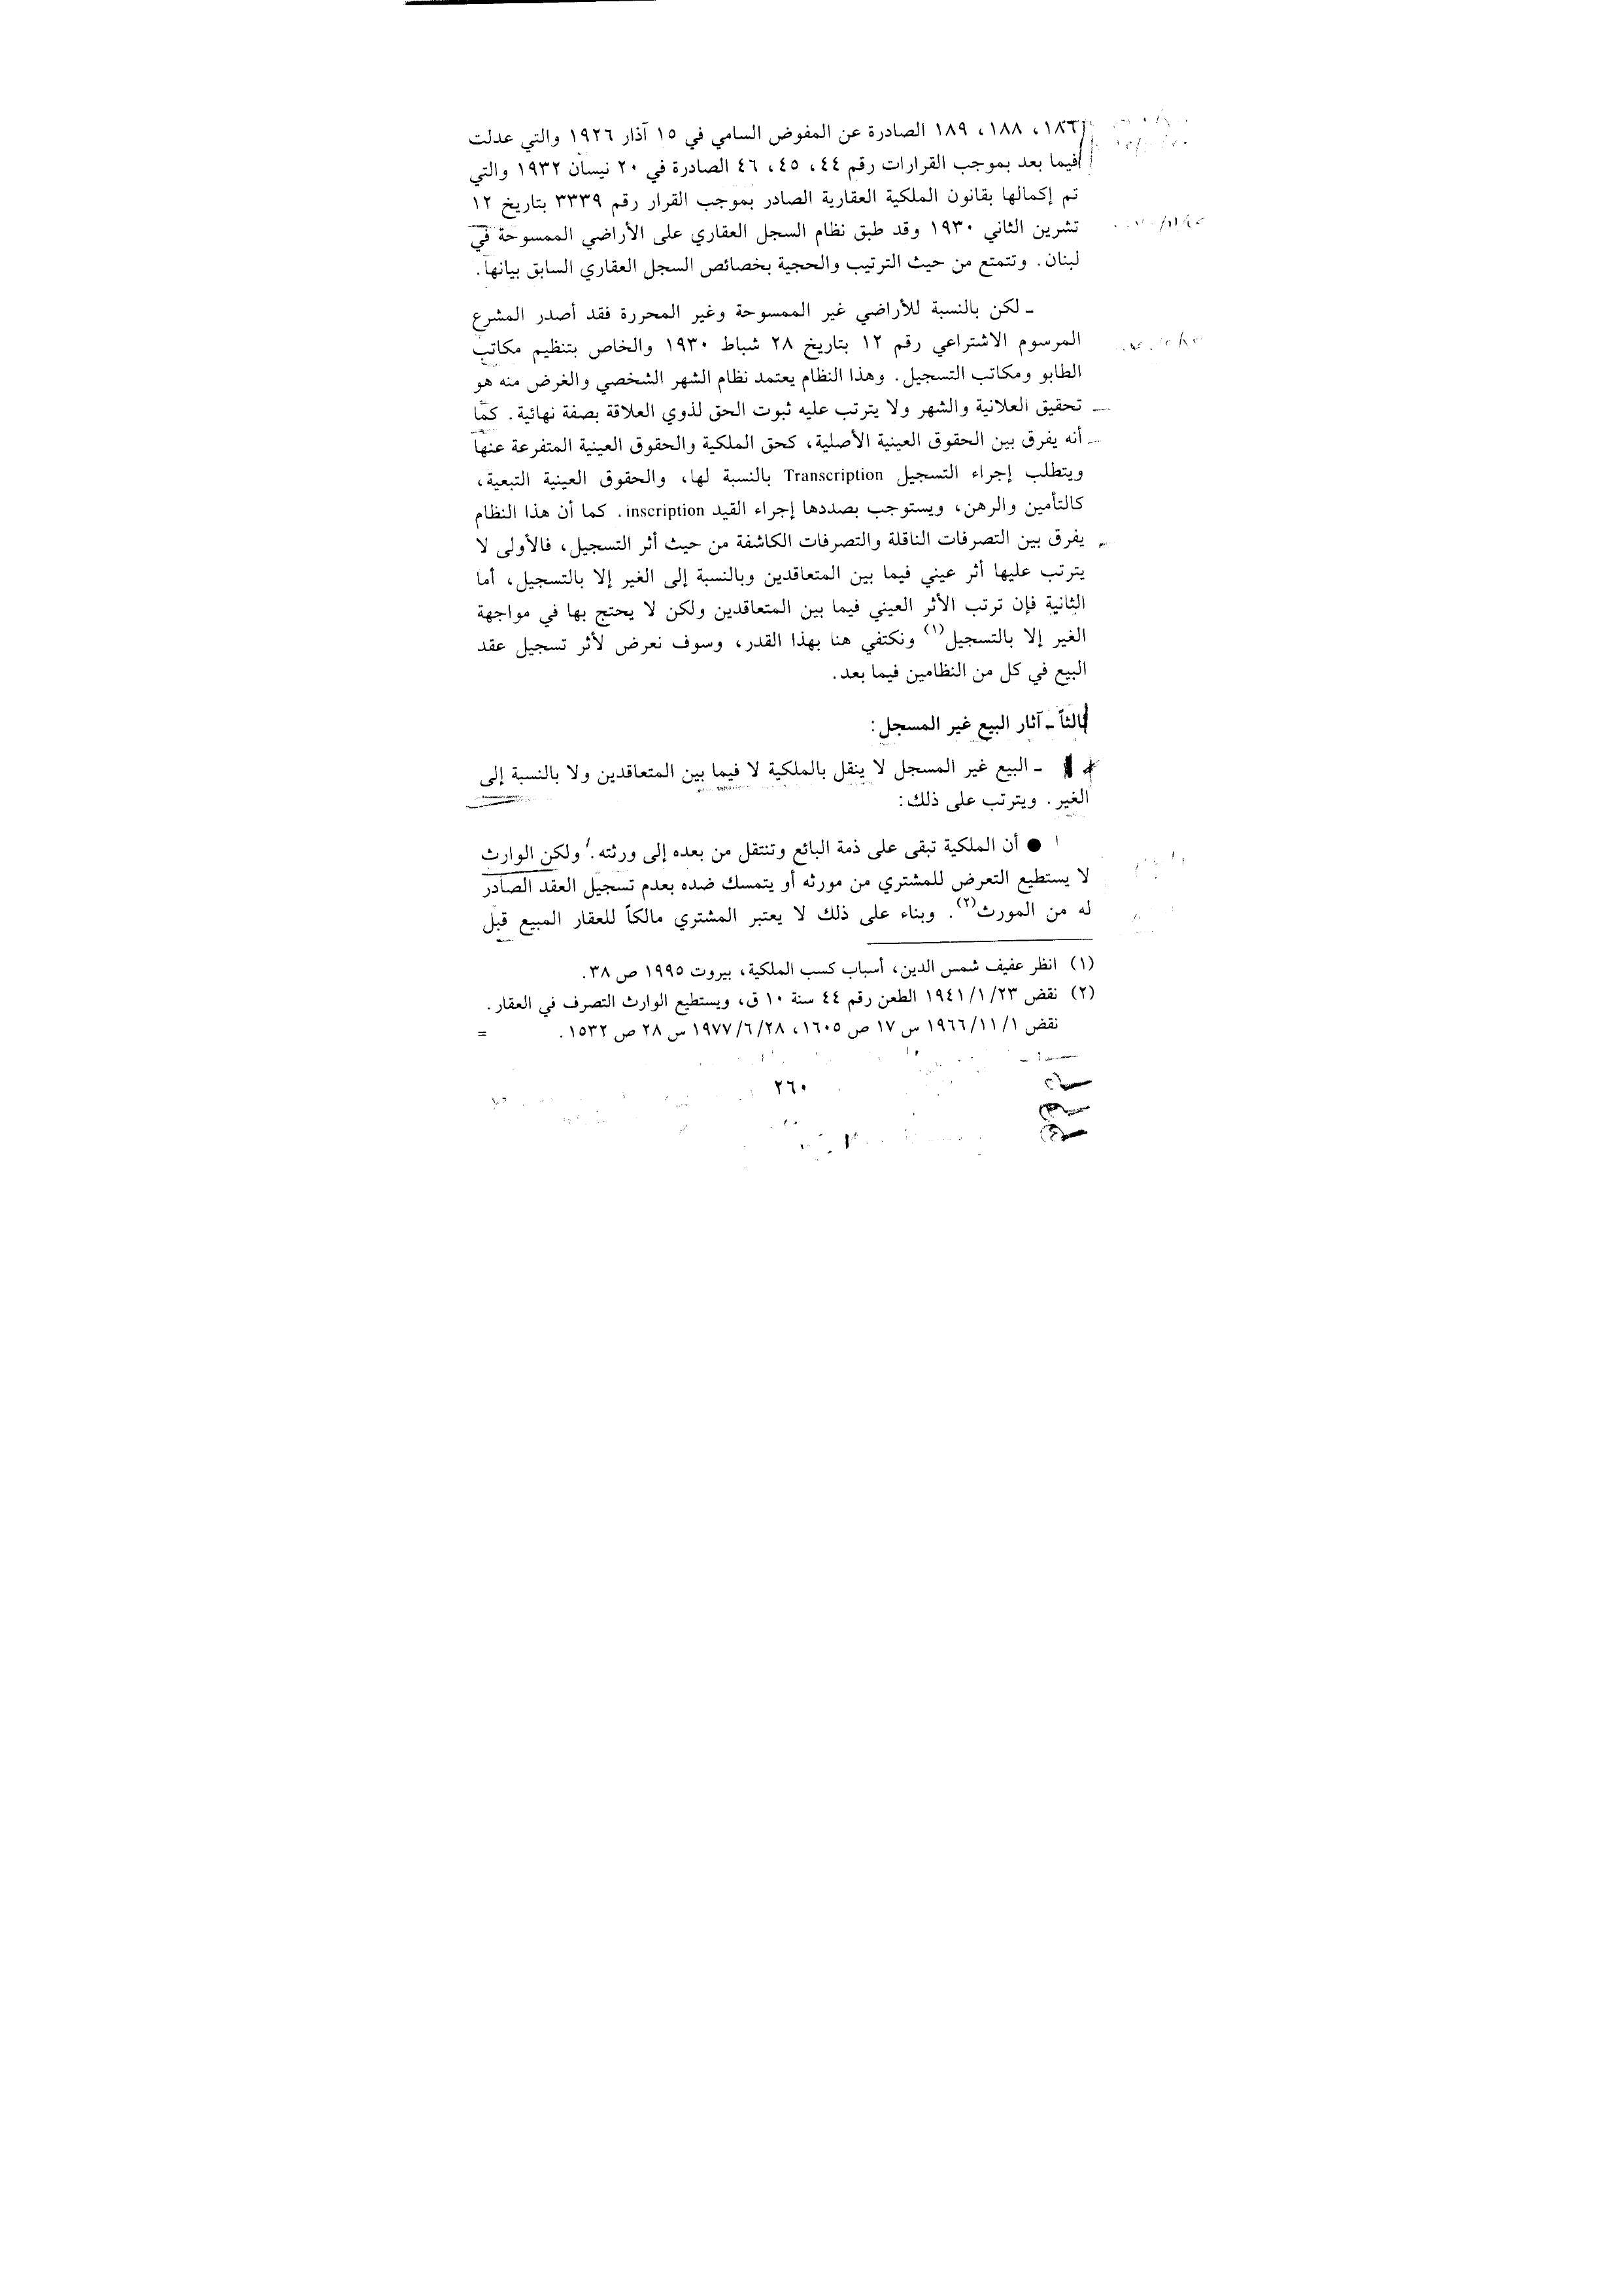 ١٨٦، ١٨٨، ١٨٩ الصادرة عن المفوض السامي في ١٥ آذار ١٩٢٦ والتي عدلت
فيما بعد بموجب القرارات رقم ٤٤، ٤٥، ٤٦ الصادرة في ٢٠ نيسان ١٩٣٢ والتي
تم إكمالها بقانون الملكية العقارية الصادر بموجب القرار رقم ٣٣٣٩ بتاريخ ١٢
تشرين الثاني ١٩٣٠ وقد طبق نظام السجل العقاري على الأراضي الممسوحة في
لبنان. وتتمتع من حيث الترتيب والحجية بخصائص السجل العقاري السابق بيانها.
ـ لكن بالنسبة للأراضي غير الممسوحة وغير المحررة فقد أصدر المشرع
المرسوم الاشتراعي رقم ١٢ بتاريخ ٢٨ شباط ١٩٣٠ والخاص بتنظيم مكاتب
الطابو ومكاتب التسجيل. وهذا النظام يعتمد نظام الشهر الشخصي والغرض منه هو
تحقيق العلانية والشهر ولا يترتب عليه ثبوت الحق لذوي العلاقة بصفة نهائية. كما
أنه يفرق بين الحقوق العينية الأصلية، كحق الملكية والحقوق العينية المتفرعة عنها
ويتطلب إجراء التسجيل Transcription بالنسبة لها، والحقوق العينية التبعية،
كالتأمين والرهن، ويستوجب بصددها إجراء القيد inscription. كما أن هذا النظام
يفرق بين التصرفات الناقلة والتصرفات الكاشفة من حيث أثر التسجيل، فالأولى لا
يترتب عليها أثر عيني فيما بين المتعاقدين وبالنسبة إلى الغير إلا بالتسجيل، أما
الثانية فإن ترتب الأثر العيني فيما بين المتعاقدين ولكن لا يحتج بها في مواجهة
الغير إلا بالتسجيل(١) ونكتفي هنا بهذا القدر، وسوف نعرض لأثر تسجيل عقد
البيع في كل من النظامين فيما بعد.
ثالثاً ـ آثار البيع غير المسجل:
ـ البيع غير المسجل لا ينقل بالملكية لا فيما بين المتعاقدين ولا بالنسبة إلى
الغير. ويترتب على ذلك:
● أن الملكية تبقى على ذمة البائع وتنتقل من بعده إلى ورثته. ولكن الوارث
لا يستطيع التعرض للمشتري من مورثه أو يتمسك ضده بعدم تسجيل العقد الصادر
له من المورث(٢). وبناء على ذلك لا يعتبر المشتري مالكاً للعقار المبيع قبل
(١) انظر عفيف شمس الدين، أسباب كسب الملكية، بيروت ١٩٩٥ ص ٣٨.
(٢) نقض ١٩٤١/١/٢٣ الطعن رقم ٤٤ سنة ١٠ ق، ويستطيع الوارث التصرف في العقار.
نقض ١٩٦٦/١١/١ س ١٧ ص ١٦٠٥، ١٩٧٧/٦/٢٨ س ٢٨ ص ١٥٣٢. =
٢٦٠